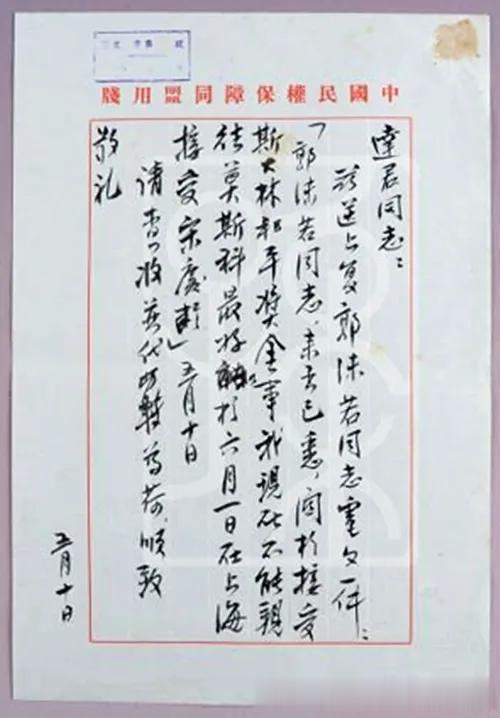 中國民權保障同盟用牋
達君同志:
茲送上复郭沫若同志電文一件:
「郭沫若同志:来电已悉,関於接受
斯大林和平奖金事我現在不能親
往莫斯科最好能於六月一日在上海
接受宋慶齡」五月十日
請查收并代轉為荷,順致
敬礼
五月十日